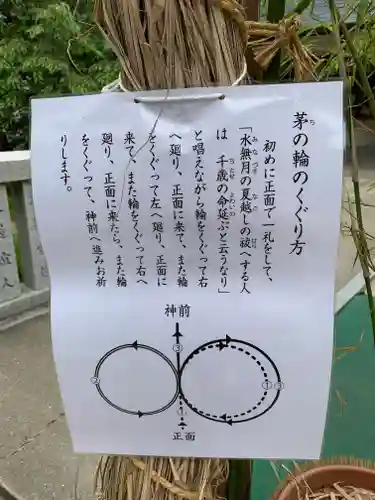 茅の輪のくぐり方
ち
初めに正面で一礼をして、
「水無月の夏越しの祓へする人
みなづき
なご
はらい
は 千歳の命延ぶと云うなり」
ちとせ
よわい
と唱えながら輪をくぐって右
へ廻り、正面に来て、また輪
をくぐって左へ廻り、正面に
来て、また輪をくぐって右へ
廻り、正面に来たら、また輪
をくぐって、神前へ進みお祈
りします。
神前
③
②
①
③
①
正面